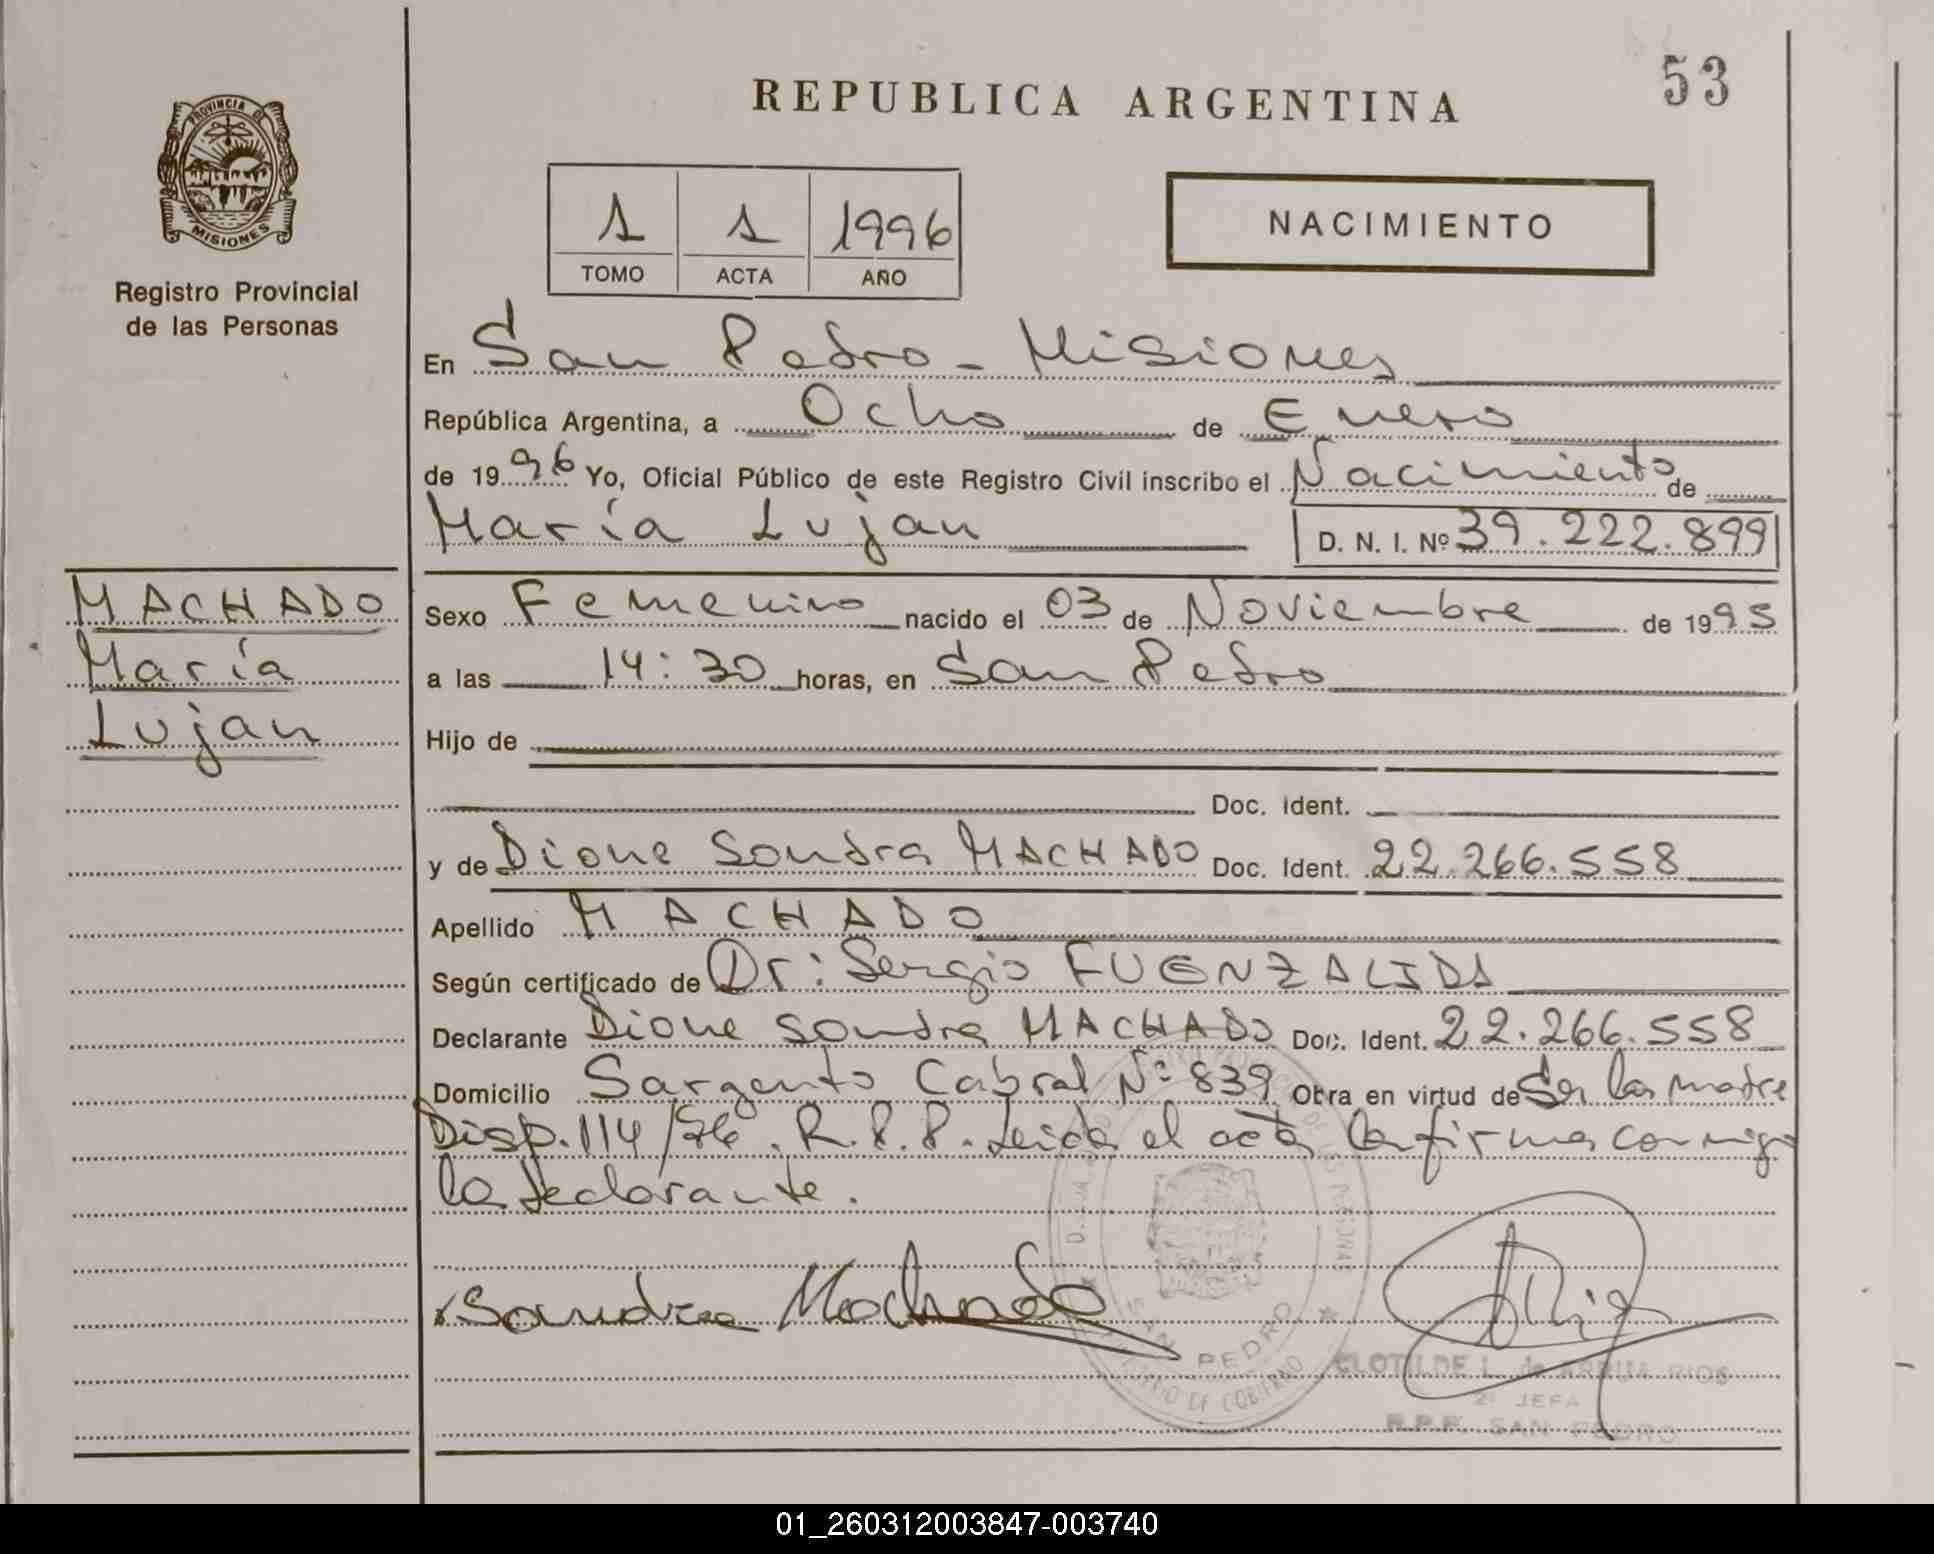 REPUBLICA ARGENTINA
53
PROVINCIA DE
MISIONES
Registro Provincial
de las Personas
1 1 1996
TOMO ACTA AÑO
NACIMIENTO
En San Pedro - Misiones
República Argentina, a Ocho de Enero
de 1996 Yo, Oficial Público de este Registro Civil inscribo el Nacimiento de
María Lujan D. N. I. Nº 39.222.899
MACHADO
María
Lujan
Sexo Femenino nacido el 03 de Noviembre de 1995
a las 14:30 horas, en San Pedro
Hijo de
Doc. Ident.
y de Dione Sandra MACHADO Doc. Ident. 22.266.558
Apellido MACHADO
Según certificado de Dr: Sergio FUENZALIDA
Declarante Dione Sandra MACHADO Doc. Ident. 22.266.558
Domicilio Sargento Cabral Nº 839 Obra en virtud de Ser la madre
Disp. 114/76. R.P.P. Leida el acta la firma conmigo
la declarante.
Sandra Machado
SAN PEDRO
CLOTILDE L. de ARRUA RIOS
2º JEFA
R.P.P. SAN PEDRO
01_260312003847-003740